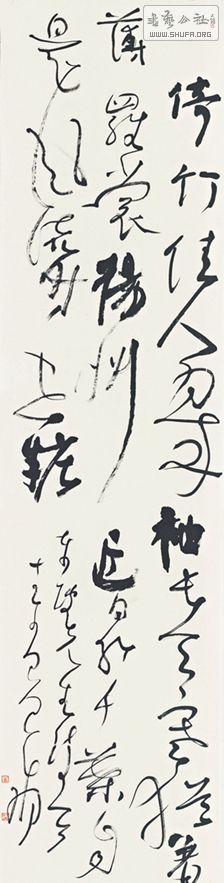 書藝公社
WWW.SHUFA.ORG
倚竹佳人翠袖長天寒猶著
薄羅裳楊州近日紅千葉自
是風流時世粧